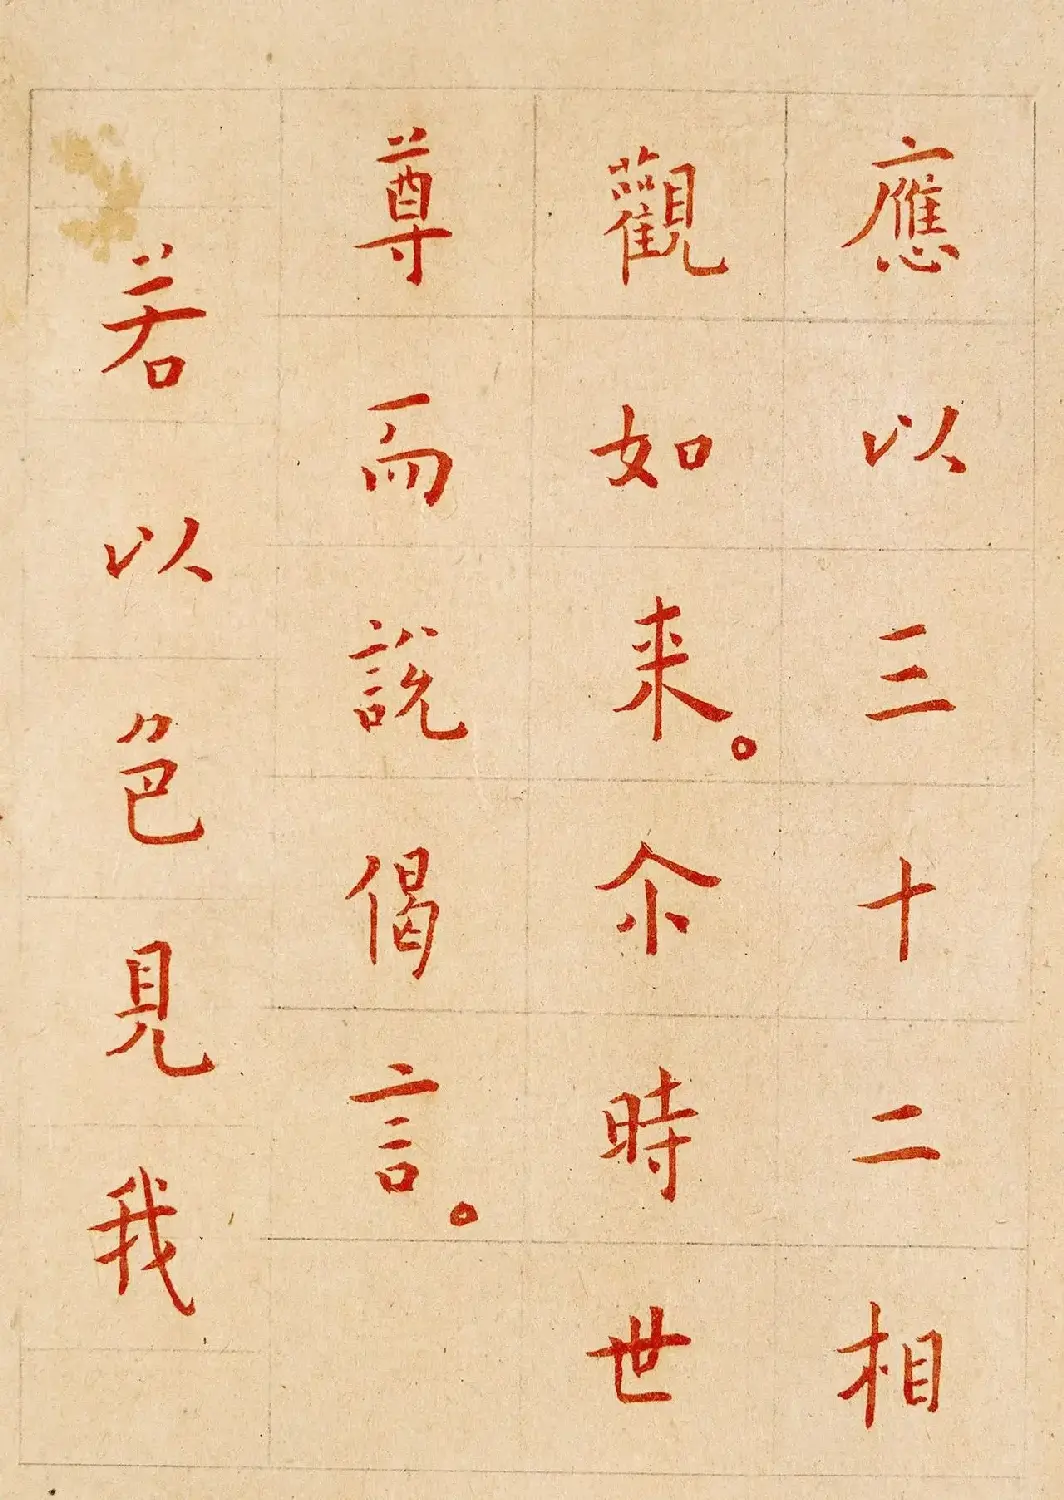 應以三十二相
觀如来。尒時世
尊而說偈言。
若以色見我